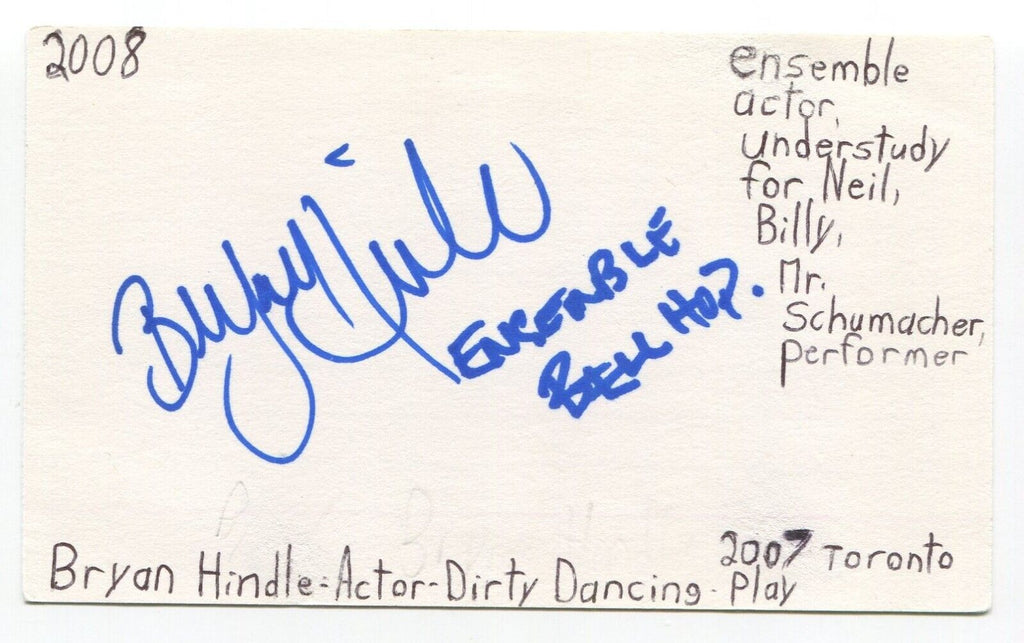 2008
ensemble
actor,
understudy
for Neil,
Billy,
Mr.
Schumacher,
performer
Bryan Hindle
ENSEMBLE
BELL HOP.
2007 Toronto
Bryan Hindle-Actor-Dirty Dancing-Play